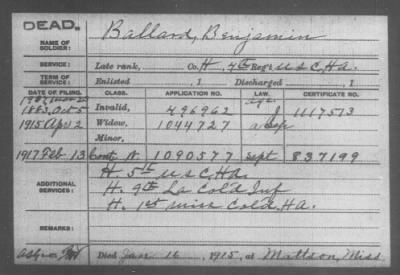 DEAD.
NAME OF SOLDIER: Ballard, Benjamin
SERVICE: Late rank, Co. H, 4th Reg't U S C, H a.
TERM OF SERVICE: Enlisted , 1 Discharged , 1
DATE OF FILING. CLASS. APPLICATION NO. LAW. CERTIFICATE NO.
1883, Oct 5 Invalid, 496962 1117513
1915 Apr 2 Widow, 1044727
Minor,
1917 Feb 13 Cont N 1090577 Sept 837199
ADDITIONAL SERVICES: H. 5th U S C, H a.
H. 9th La Cold Inf
H. 1st Miss Cold, H A.
REMARKS:
Died Jan 16, 1915, at Mattson, Miss.